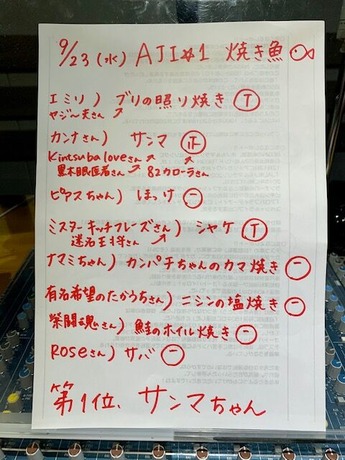 9/23(水) AJI☆1 焼き魚
エミリ) ブリの照り焼き T
ヤジ〜夫さん↗
カンナさん) サンマ 正
Kintsuba loveさん↗
黒木眼医者さん↗ 82カローラさん
ピアスちゃん) ほっけ 一
ミスターキッチフレーズさん) シャケ T
迷名王子さん↗
ナミちゃん) カンパチちゃんのカマ焼き 一
有名希望のたかうちさん) ニシンの塩焼き 一
さん) 鮭のホイル焼き 一
ROSEさん) サバ 一
第1位、サンマちゃん